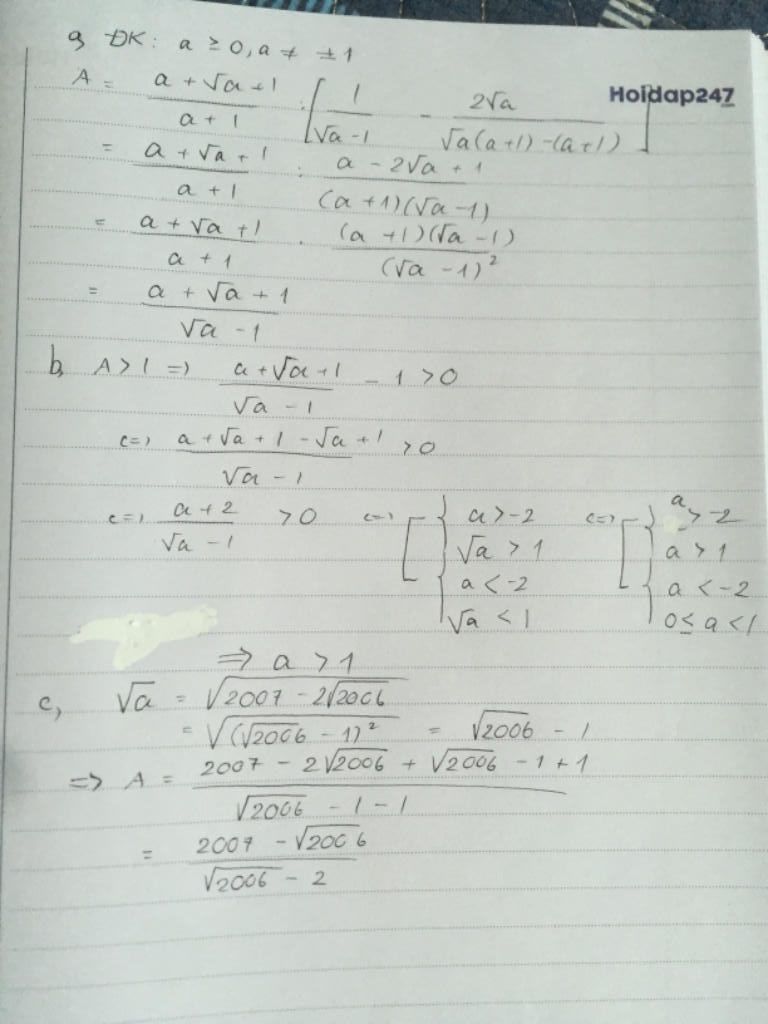 a, ĐK: a ≥ 0, a ≠ ±1
Hoidap247
A = (a + √a + 1)/(a + 1) : [1/(√a - 1) - 2√a/(√a(a+1) - (a+1))]
= (a + √a + 1)/(a + 1) : (a - 2√a + 1)/((a + 1)(√a - 1))
= (a + √a + 1)/(a + 1) . ((a + 1)(√a - 1))/(√a - 1)²
= (a + √a + 1)/(√a - 1)
b, A > 1 => (a + √a + 1)/(√a - 1) - 1 > 0
<=> (a + √a + 1 - √a + 1)/(√a - 1) > 0
<=> (a + 2)/(√a - 1) > 0 <=> [ { a > -2 √a > 1 { a < -2 √a < 1 <=> [ { a > -2 a > 1 { a < -2 0 ≤ a < 1
=> a > 1
c, √a = √(2007 - 2√2006)
= √((√2006 - 1)²) = √2006 - 1
=> A = (2007 - 2√2006 + √2006 - 1 + 1)/(√2006 - 1 - 1)
= (2007 - √2006)/(√2006 - 2)